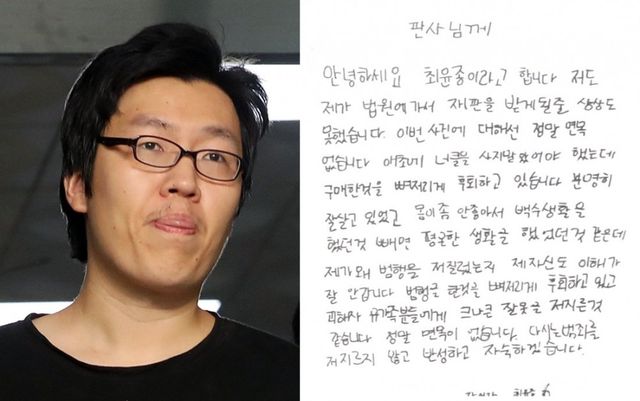 판사님께
안녕하세요 최윤종이라고 합니다 저도
제가 법원에가서 재판을 받게될줄 상상도
못했습니다. 이번 사건에 대해선 정말 면목
없습니다 애초에 너클을 사지말았어야 했는데
구매한것을 뼈저리게 후회하고 있습니다 분명히
잘살고 있었고 몸이좀 안좋아서 백수생활을
했던것 빼면 평온한 생활을 했었던것 같은데
제가왜 범행을 저질렀는지 제자신도 이해가
잘 안갑니다 범행을 한것을 뼈저리게 후회하고 있고
피해자 유가족분들에게 크나큰 잘못을 저지른것
같습니다 정말 면목이 없습니다. 다시는범죄를
저지르지 않고 반성하고 자숙하겠습니다.
최윤종